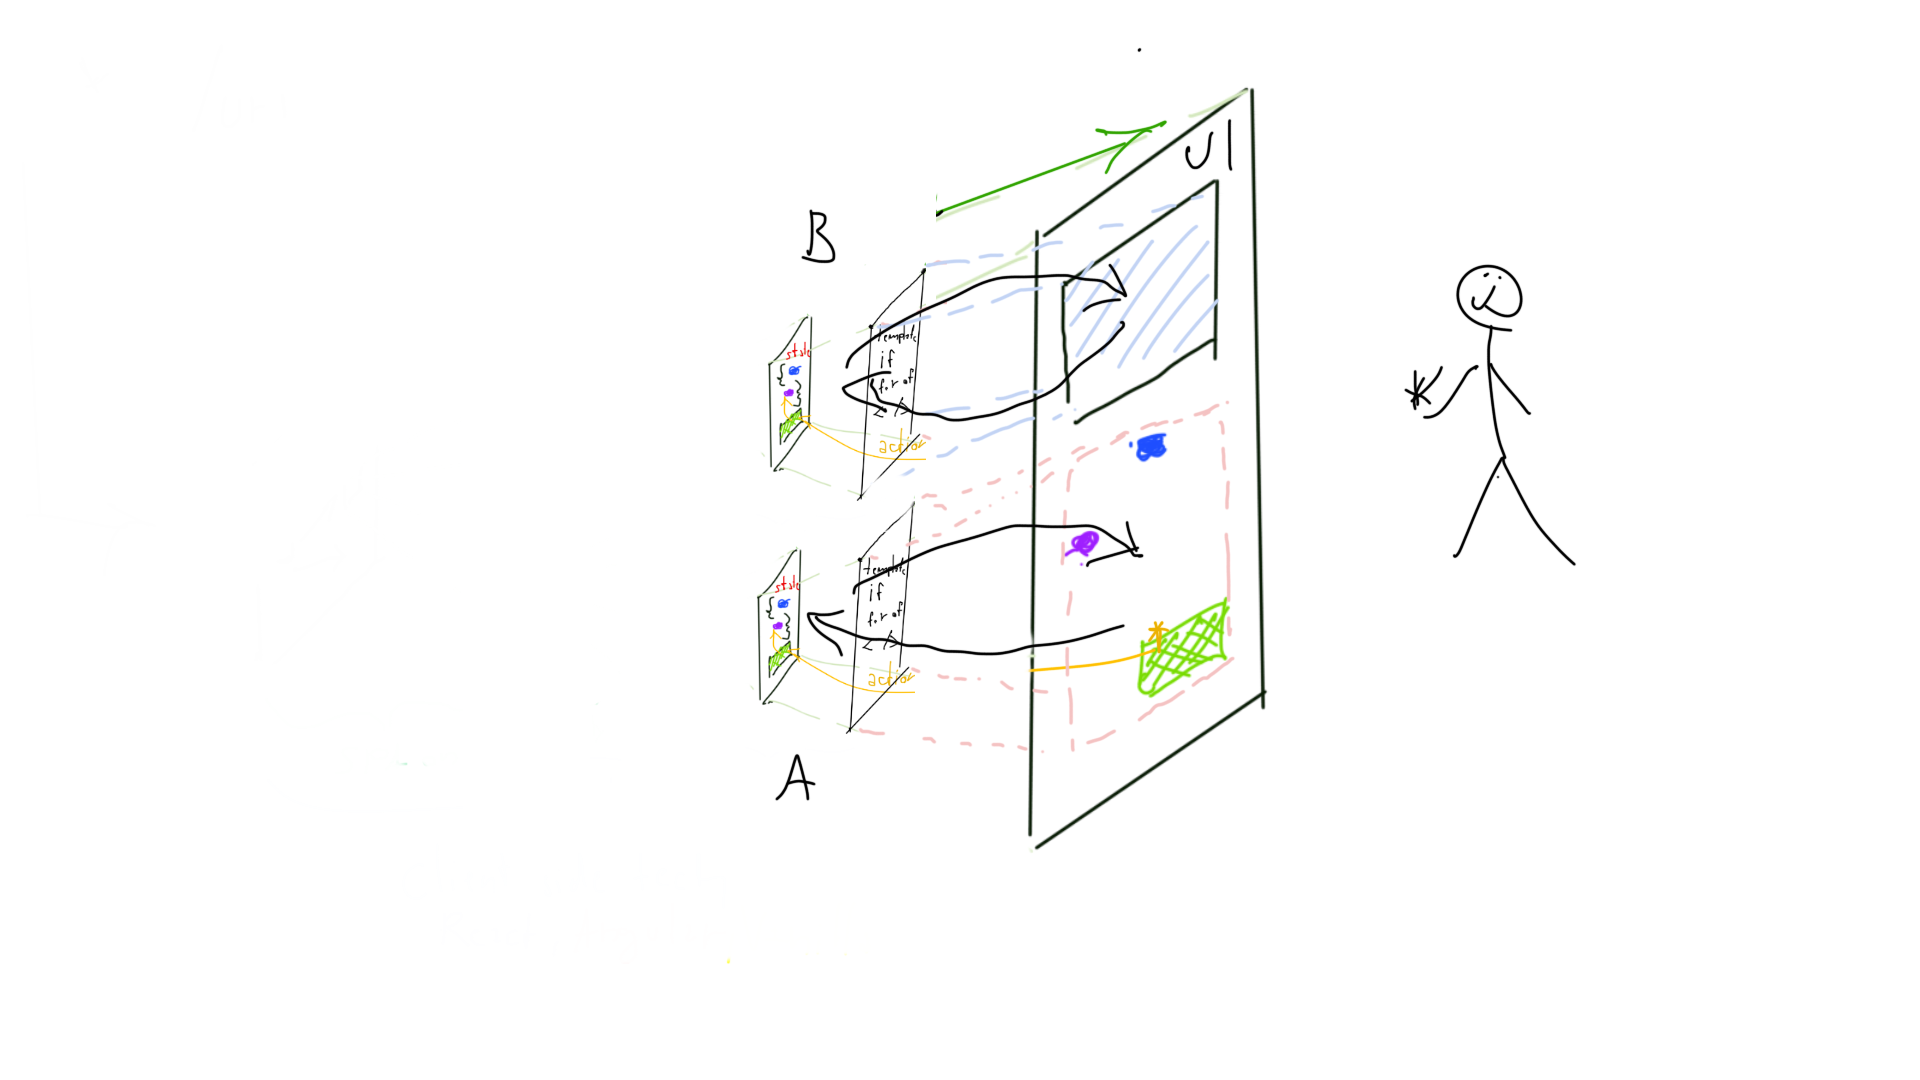 UI
B
state
template
if
for of
</>
action
state
template
if
for of
</>
action
A